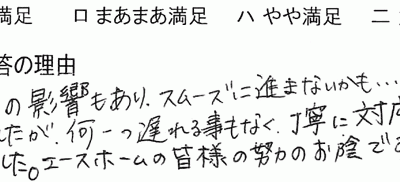 満足 ロ まあまあ満足 ハ やや満足 ニ
答の理由
の影響もあり、スムーズに進まないかも…
たが、何一つ遅れる事もなく、丁寧に対応
した。エースホームの皆様の努力のお陰で